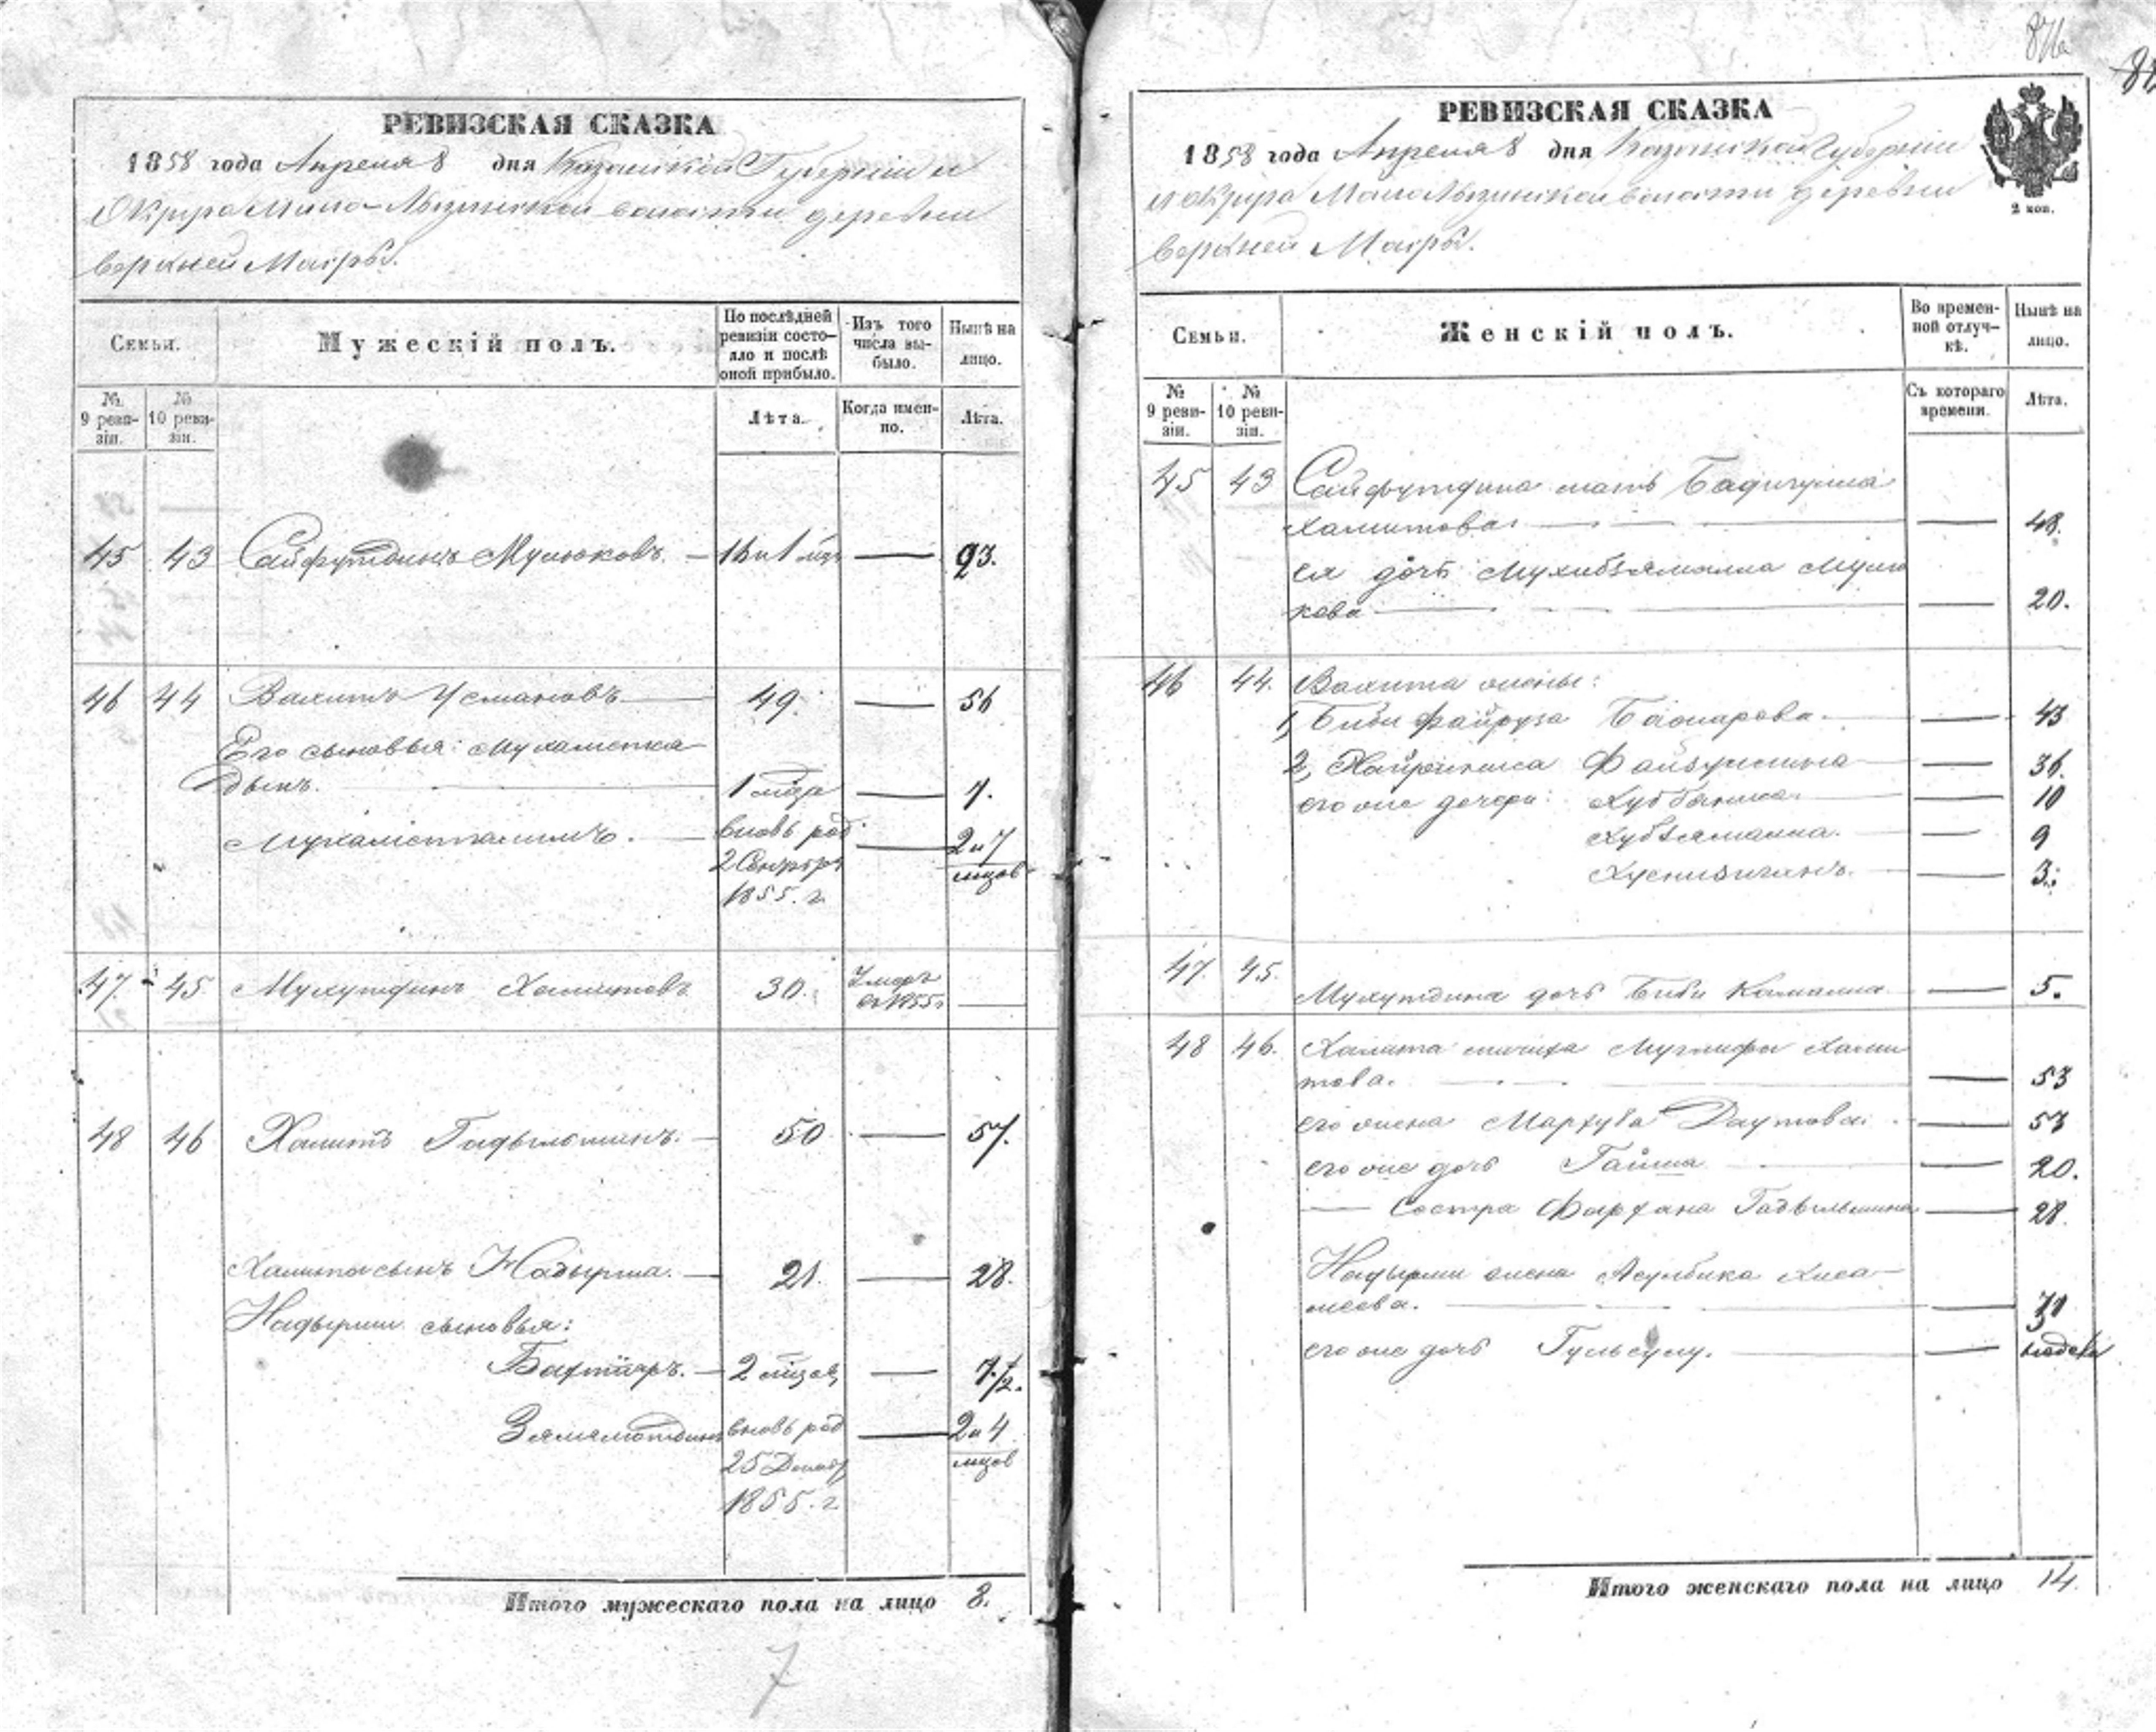 РЕВИЗСКАЯ СКАЗКА
1858 года Апреля 8 дня Казанской Губернии и
Округа Мало-Лызинской волости деревни
верхней Масры.
Семьи.
Мужескій полъ.
По послѣдней ревизіи состояло и послѣ оной прибыло.
Изъ того числа выбыло.
Нынѣ на лицо.
№ 9 ревизіи.
№ 10 ревизіи.
Лѣта.
Когда именно.
Лѣта.
45 43 Сайфутдинъ Мулюковъ. — 16 и 1 мца — 23.
46 44 Вахитъ Усмановъ — 49. — 56
Его сыновья: Мухаметка
дыкъ. — 1 мца — 7.
Мухаметгалимъ. — вновь род — 2 и 7
2 1855. г. мцов
47. 45 Мухутдинъ Хамитовъ 30. Умеръ
въ 1855 г —
48 46 Халитъ Гадыльшинъ. — 50 — 57.
Халита сынъ Надырша. — 21. — 28.
Надырши сыновья:
Бахтіяръ. — 2 мцов — 7 1/2.
вновь род — 2 и 4
25 Декаб мцов
1855. г
Итого мужескаго пола на лицо 8.
7
РЕВИЗСКАЯ СКАЗКА
1858 года Апреля 8 дня Казанской Губерніи
и округа МалоЛызинской волости деревни
верхней Масры.
2 коп.
Семьи.
Женскій полъ.
Во временной отлучкѣ.
Нынѣ на лицо.
№ 9 ревизіи.
№ 10 ревизіи.
Съ котораго времени.
Лѣта.
45 43 Сайфутдина мать Бадигулма
Хамитова — — 48.
ея дочь Мухибзямалла Мулю
кова — — 20.
46 44. Вахита жены:
1, Биби Файруза — 43
2, Файзуллина — 36.
его же дочери: Хуббениса — 10
Хубзямалла. — 9
Хуснизиганъ. — 3.
47. 45. Мухутдина дочь Биби Камалиа — 5.
48 46. Халита мачиха Хами
това. — — 53
его жена Мархуба Даутова — 57
его же дочь Гайша — 20.
— Сестра Фархана Гадыльшина — 28.
Надырши жена Хиса
меева. — —
его же дочь Гульсуму. —
Итого женскаго пола на лицо 14.